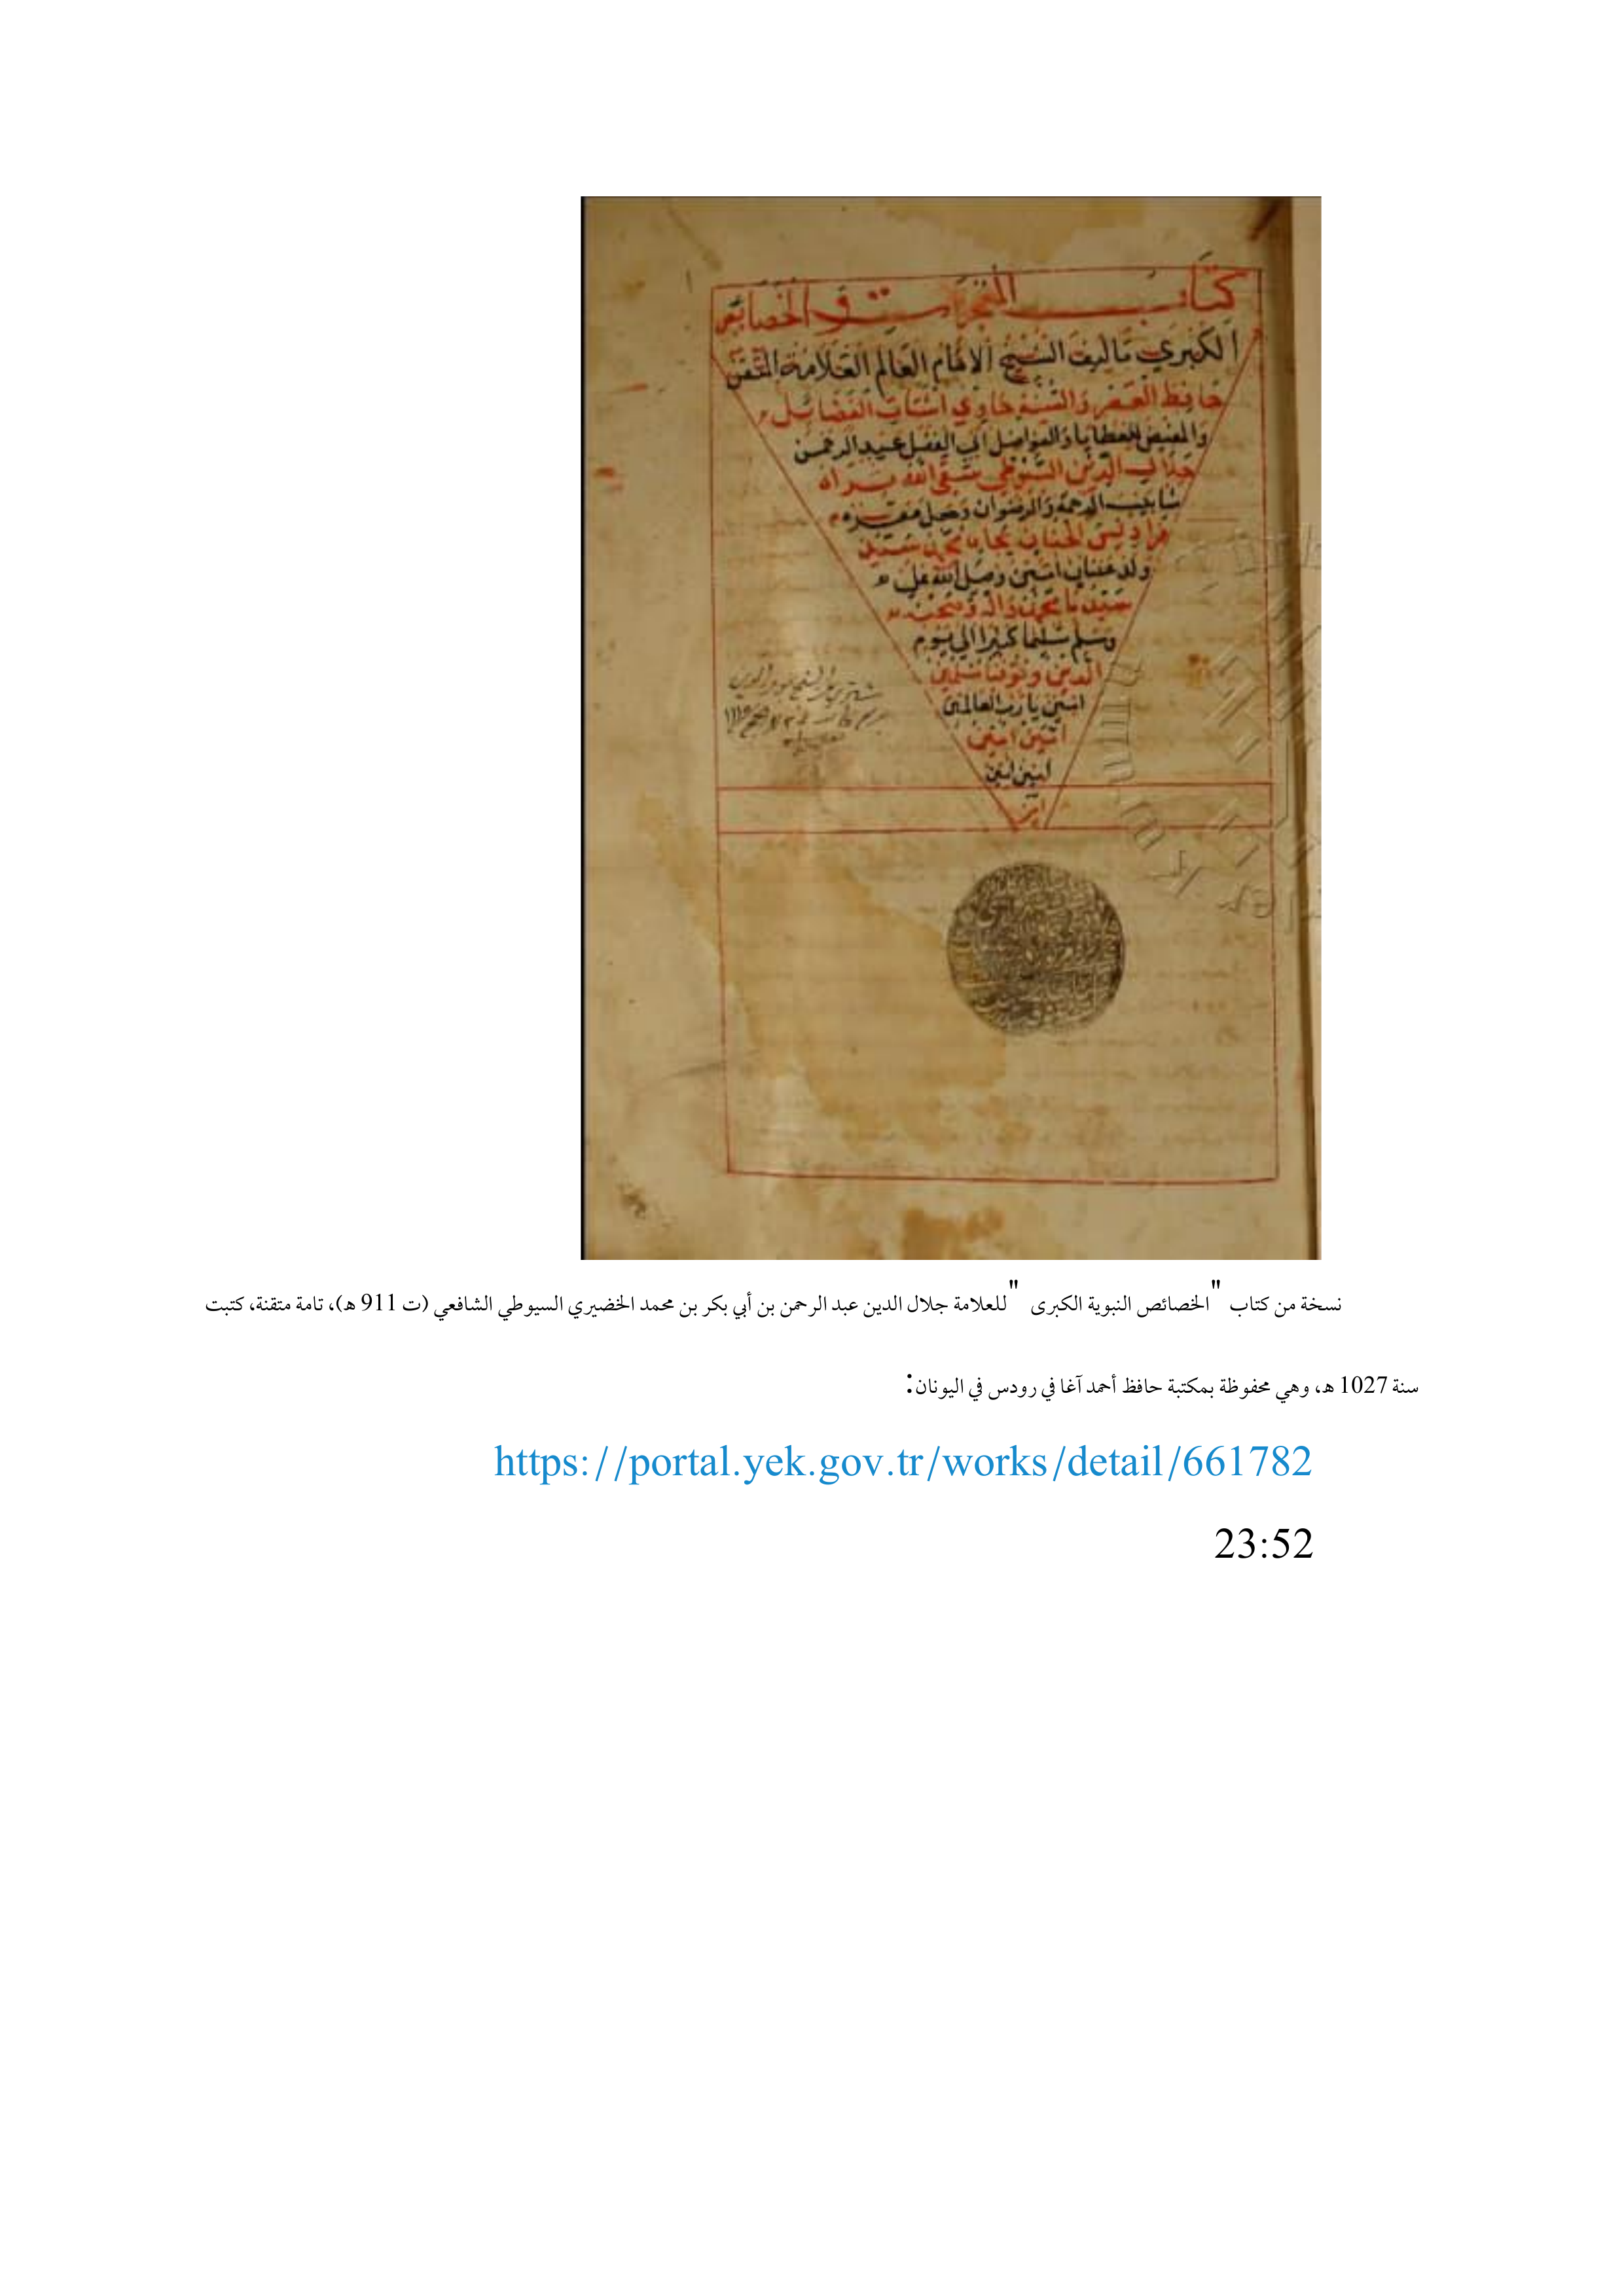 كتاب المعجزات في الخصائص
الكبري تاليف الشيخ الامام العالم العلامة المتقن
حافظ العصر والسنة حاوي اشتات الفضائل
والمفيض للعطايا والفواضل ابي الفضل عبد الرحمن
جلال الدين السيوطي سقى الله ثراه
شابيب الرحمة والرضوان وجعل مقره
فراديس الجنان بجاه محمد سيد
ولد عدنان امين وصلى الله على
سيدنا محمد واله وصحبه
وسلم تسليما كثيرا الي يوم
الدين وتوفنا مسلمين
امين يا رب العالمين
امين امين
امين امين
نسخة من كتاب "الخصائص النبوية الكبرى " للعلامة جلال الدين عبد الرحمن بن أبي بكر بن محمد الخضيري السيوطي الشافعي (ت 911 هـ)، تامة متقنة، كتبت
سنة 1027 هـ، وهي محفوظة بمكتبة حافظ أحمد آغا في رودس في اليونان:
https://portal.yek.gov.tr/works/detail/661782
23:52